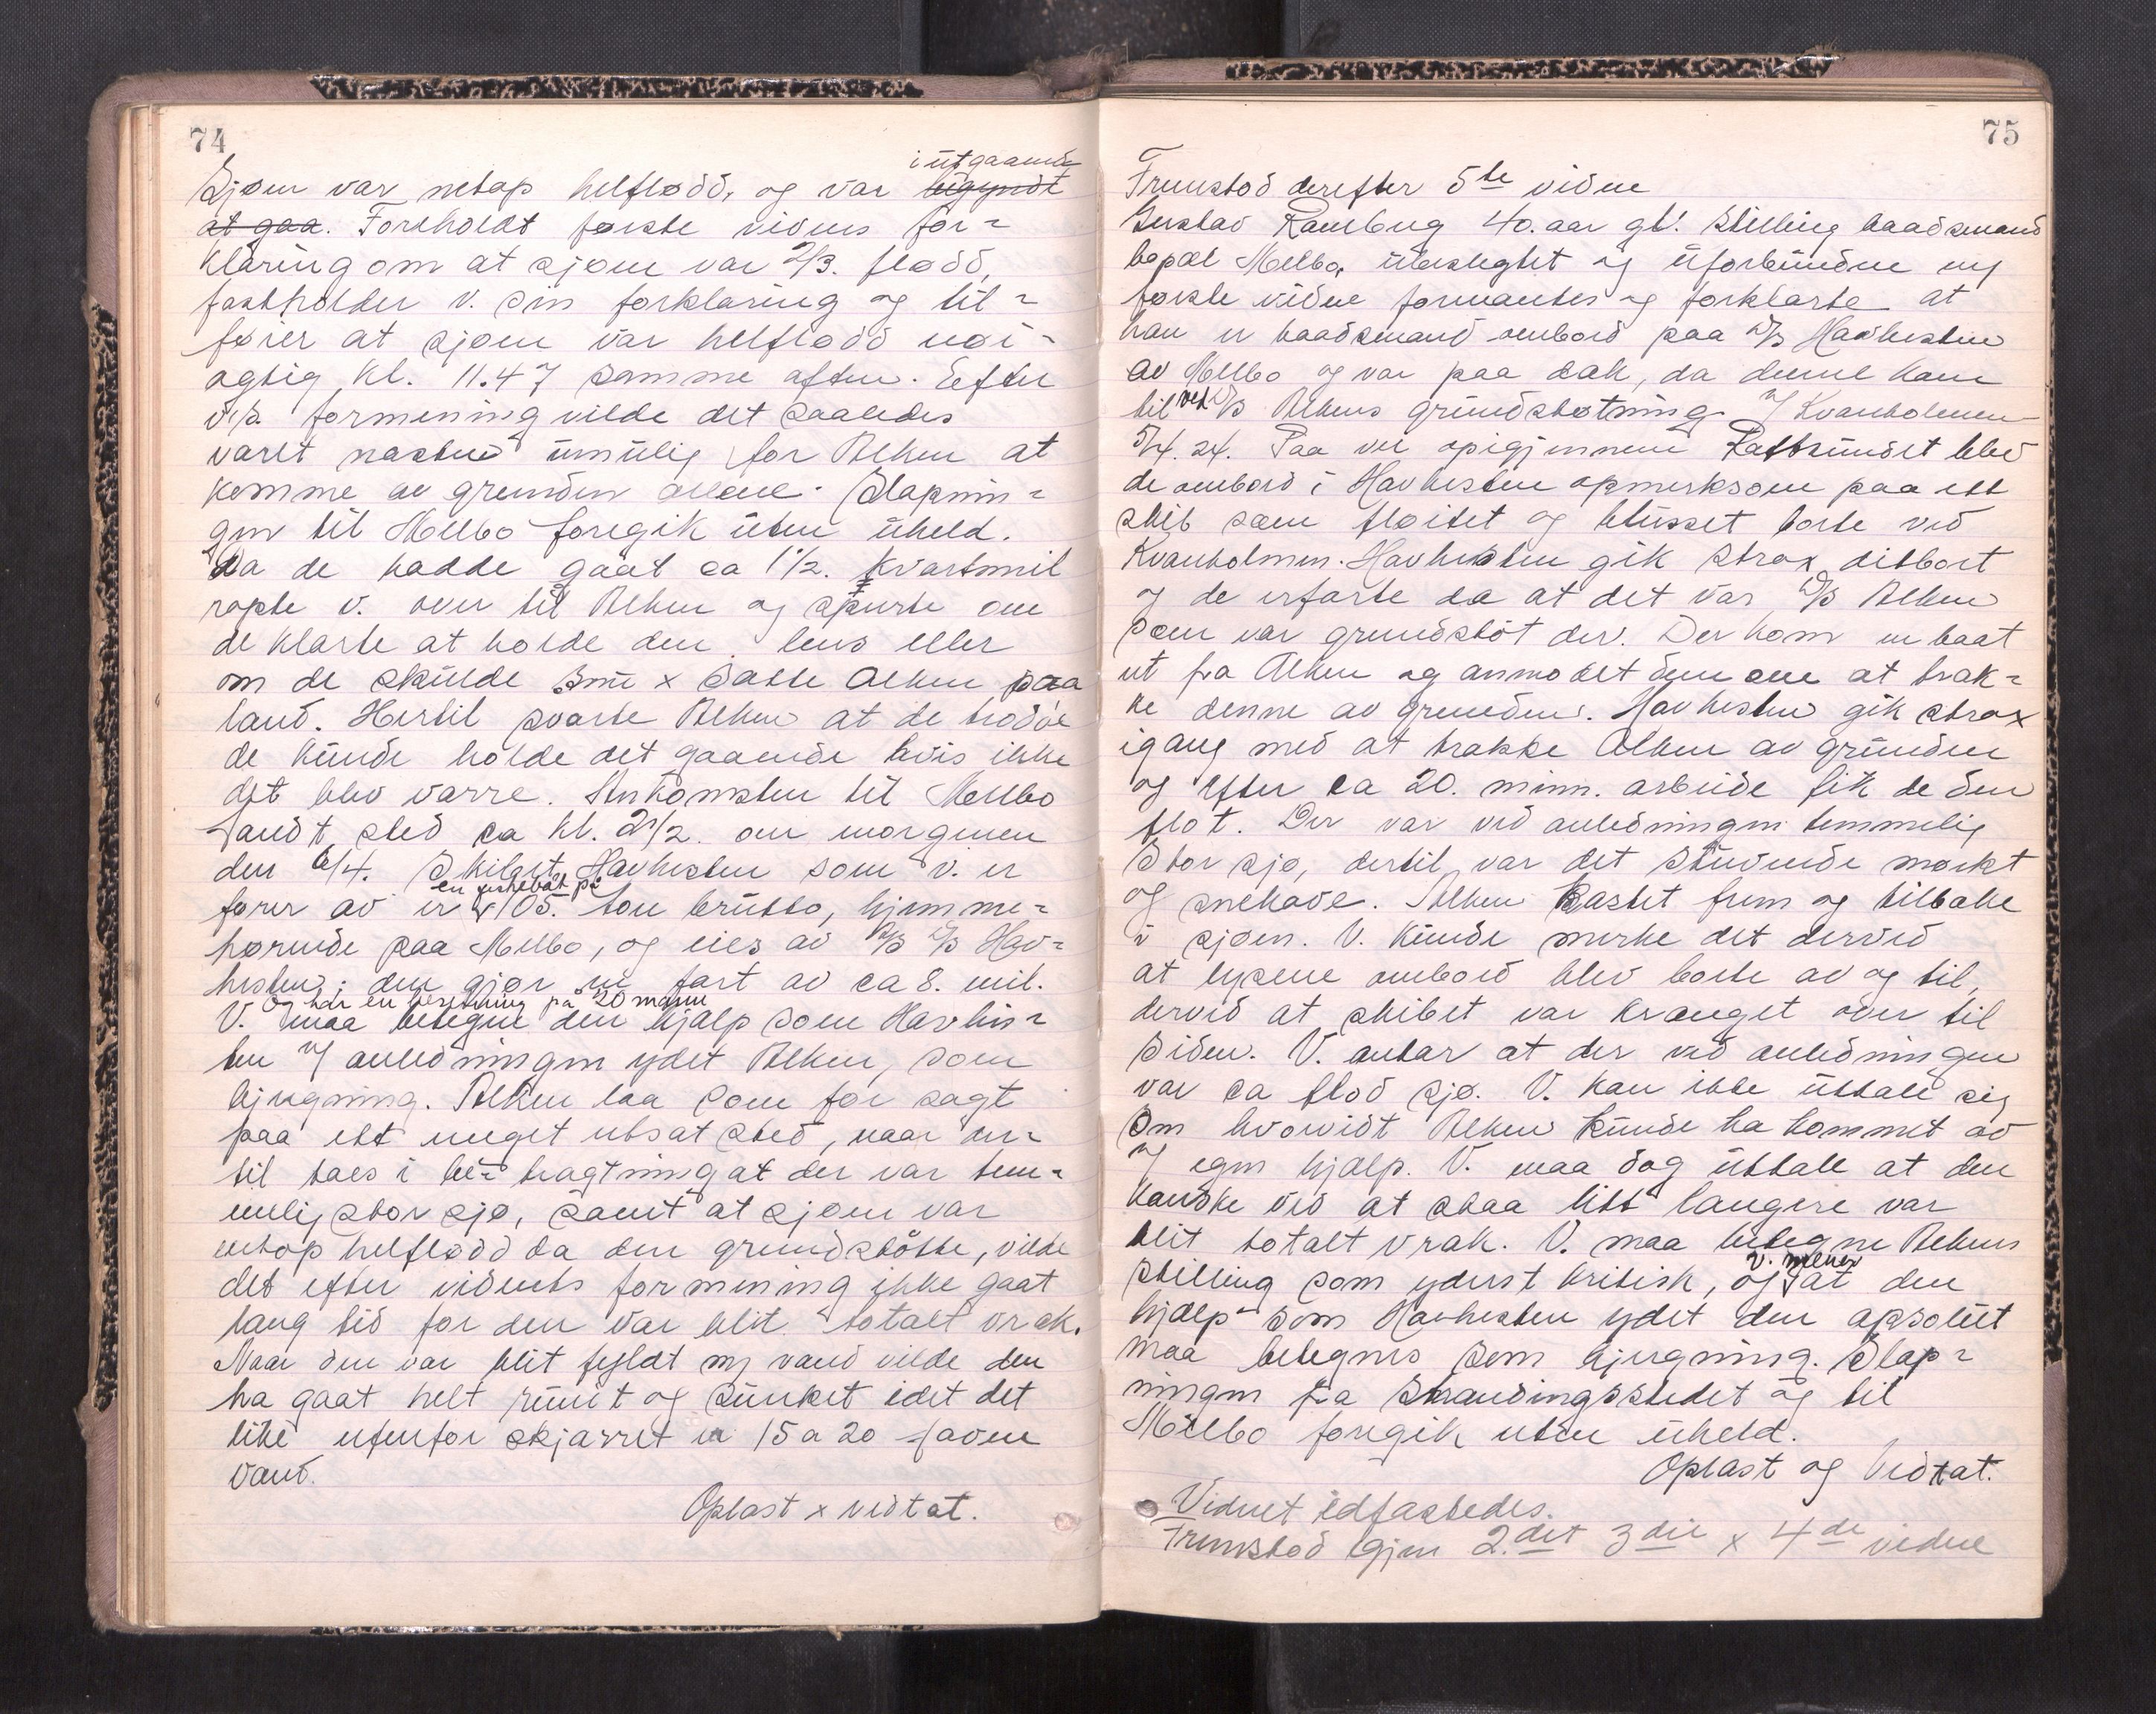 74
i utgaaende
Sjøen var netop helflødd, og var begyndt
at gaa. Foreholdt første vidnes for-
klaring om at sjøen var 2/3. flødd,
fastholder v. sin forklaring og til-
føier at sjøen var helflødd nøi-
agtig kl. 11.47 samme aften. Efter
v's. formening vilde det saaledes
været næsten umulig for Alken at
komme av grunden alene. Slæpnin-
gen til Melbo foregik uten uheld.
Da de hadde gaat ca 1 1/2. kvartmil
ropte v. over til Alken og spurte om
de klarte at holde den lens eller
om de skulde snu x sætte Alken paa
land. Hertil svarte Alken at de trodde
de kunde holde det gaaende hvis ikke
det blev værre. Ankomsten til Melbo
fandt sted ca kl. 2 1/2. om morgenen
den 6/4. Skibet Havhesten som v. er
en fiskebåt på
fører av er 105. ton brutto, hjemme-
hørende paa Melbo, og eies av A/S D/S Hav-
hesten; den gjør en fart av ca 8. mil.
og har en besetning på 20 mann
V. maa betegne den hjælp som Havhes-
ten v/ anledningen ydet Alken, som
bjergning. Alken laa som før sagt
paa ett meget utsat sted, naar en-
til taes i be- tragtning at der var tem-
melig stor sjø, samt at sjøen var
netop helflødd da den grundstøtte, vilde
det efter vidnets formening ikke gaat
lang tid før den var blit totalt vrak.
Naar den var blit fyldt m/ vand vilde den
ha gaat helt rundt og sunket idet det
like utenfor skjærret er 15 a 20 favne
vand.
Oplæst x vedtat.
75
Fremstod derefter 5te vidne
Gustav Ramberg 40. aar gl. stilling baadsmand
bopæl Melbo, ubeslegtet og uforbunden m/
første vidne formantes og forklarte at
han er baadsmand ombord paa D/S Havhesten
av Melbo og var paa dæk, da denne kom
til ved D/S Alkens grundstøtning v/ Kvanholmen
5/4. 24. Paa vei opigjennem Raftsundet blev
de ombord i Havhesten opmerksom paa ett
skib som fløitet og blusset borte ved
Kvanholmen. Havhesten gik strax ditbort
og de erfarte da at det var D/S Alken
som var grundstøt der. Der kom en baat
ut fra Alken og anmodet dem om at træk-
ke denne av grunden. Havhesten gik strax
igang med at trække Alken av grunden
og efter ca 20. minn. arbeide fik de den
flot. Der var ved anledningen temmelig
stor sjø, dertil var det stuvende mørkt
og snekave. Alken kastet frem og tilbake
i sjøen. V. kunde merke det derved
at lysene ombord blev borte av og til,
derved at skibet var krænget over til
siden. V. antar at der ved anledningen
var ca flod sjø. V. kan ikke uttale sig
om hvorvidt Alken kunde ha kommet av
v/ egen hjælp. V. maa dog uttale at den
kandske ved at staa litt længere var
blit totalt vrak. V. maa betegne Alkens
v. mener
stilling som yderst kritisk, og at den
hjælp som Havhesten ydet den apsolut
maa betegnes som bjergning. Slæp-
ningen fra strandingsstedet og til
Melbo foregik uten uheld.
Oplæst og Vedtat.
Vidnet edfæstedes.
Fremstod igjen 2.det 3die x 4de vidne